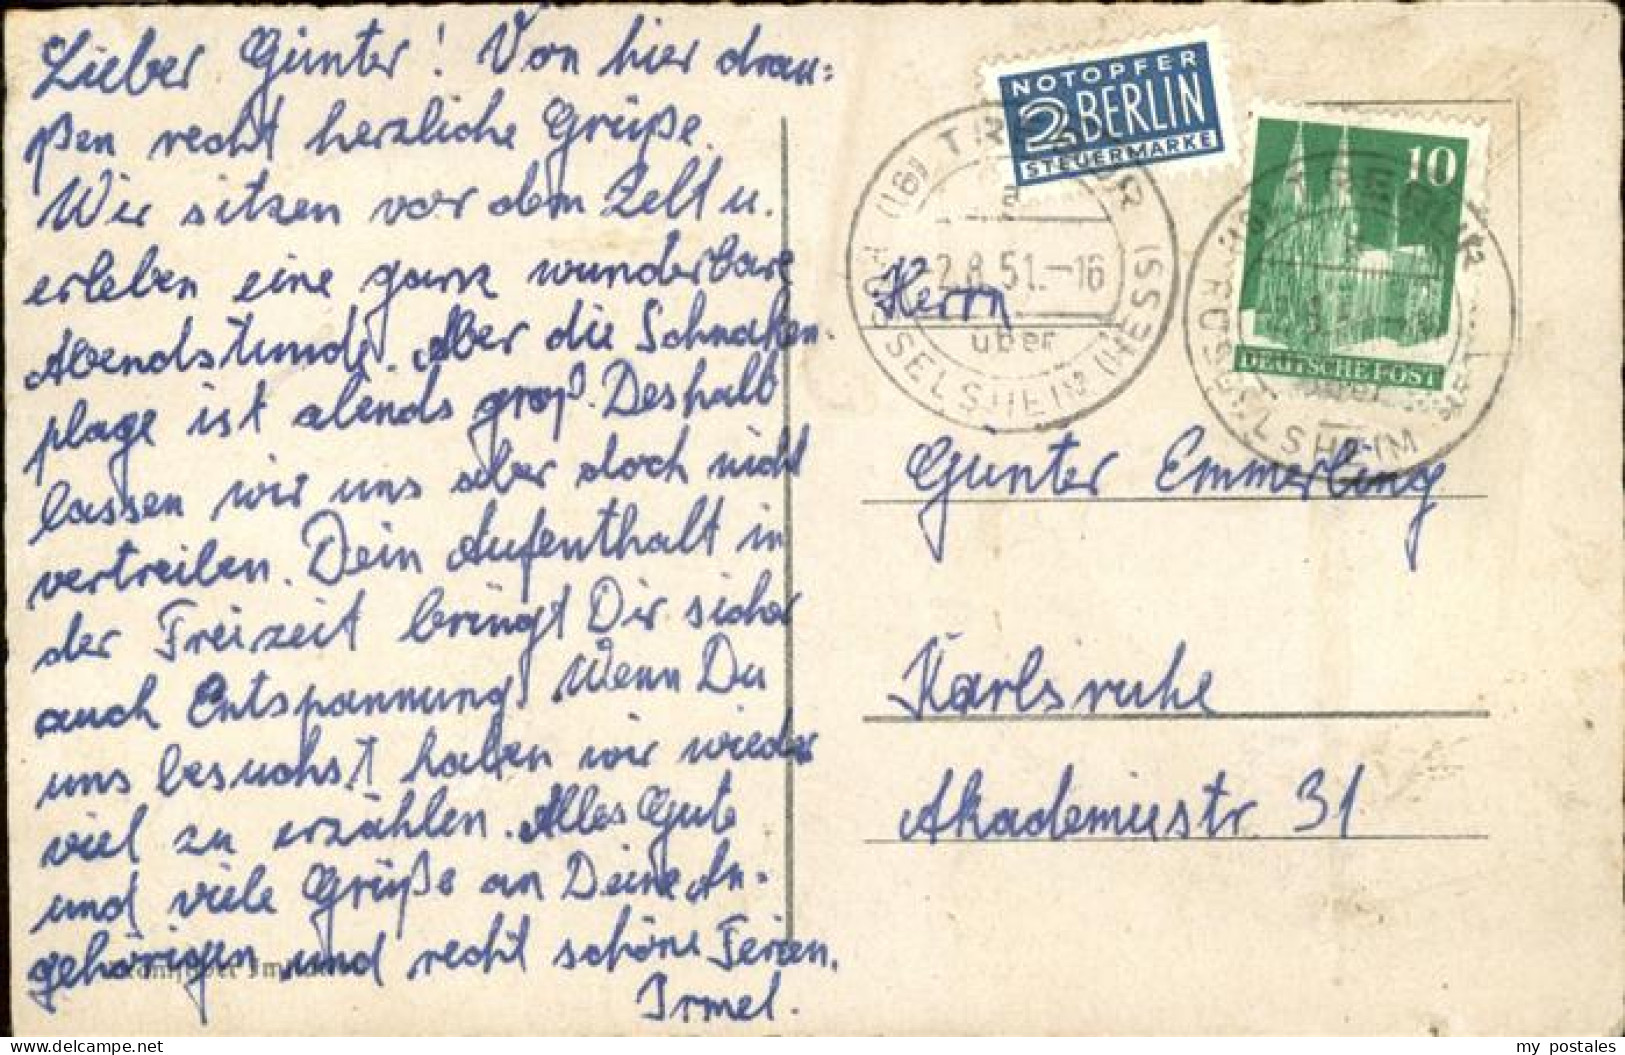 Lieber Günter! Von hier drau=
ßen recht herzliche Grüße.
Wir sitzen vor dem Zelt u.
erleben eine ganz wunderbare
Abendstunde. Aber die Schnaken-
plage ist abends groß. Deshalb
lassen wir uns aber doch nicht
vertreiben. Dein Aufenthalt in
der Freizeit bringt Dir sicher
auch Entspannung. Wenn Du
uns besuchst haben wir wieder
viel zu erzählen. Alles Gute
und viele Grüße an Deine An-
gehörigen und recht schöne Ferien.
Irmel.
NOTOPFER
2 BERLIN
STEUERMARKE
10
DEUTSCHE POST
(16) TREBUR
2.8.51.-16
über
RÜSSELSHEIM (HESS)
Herrn
Günter Emmerling
Karlsruhe
Akademiestr. 31
my postales